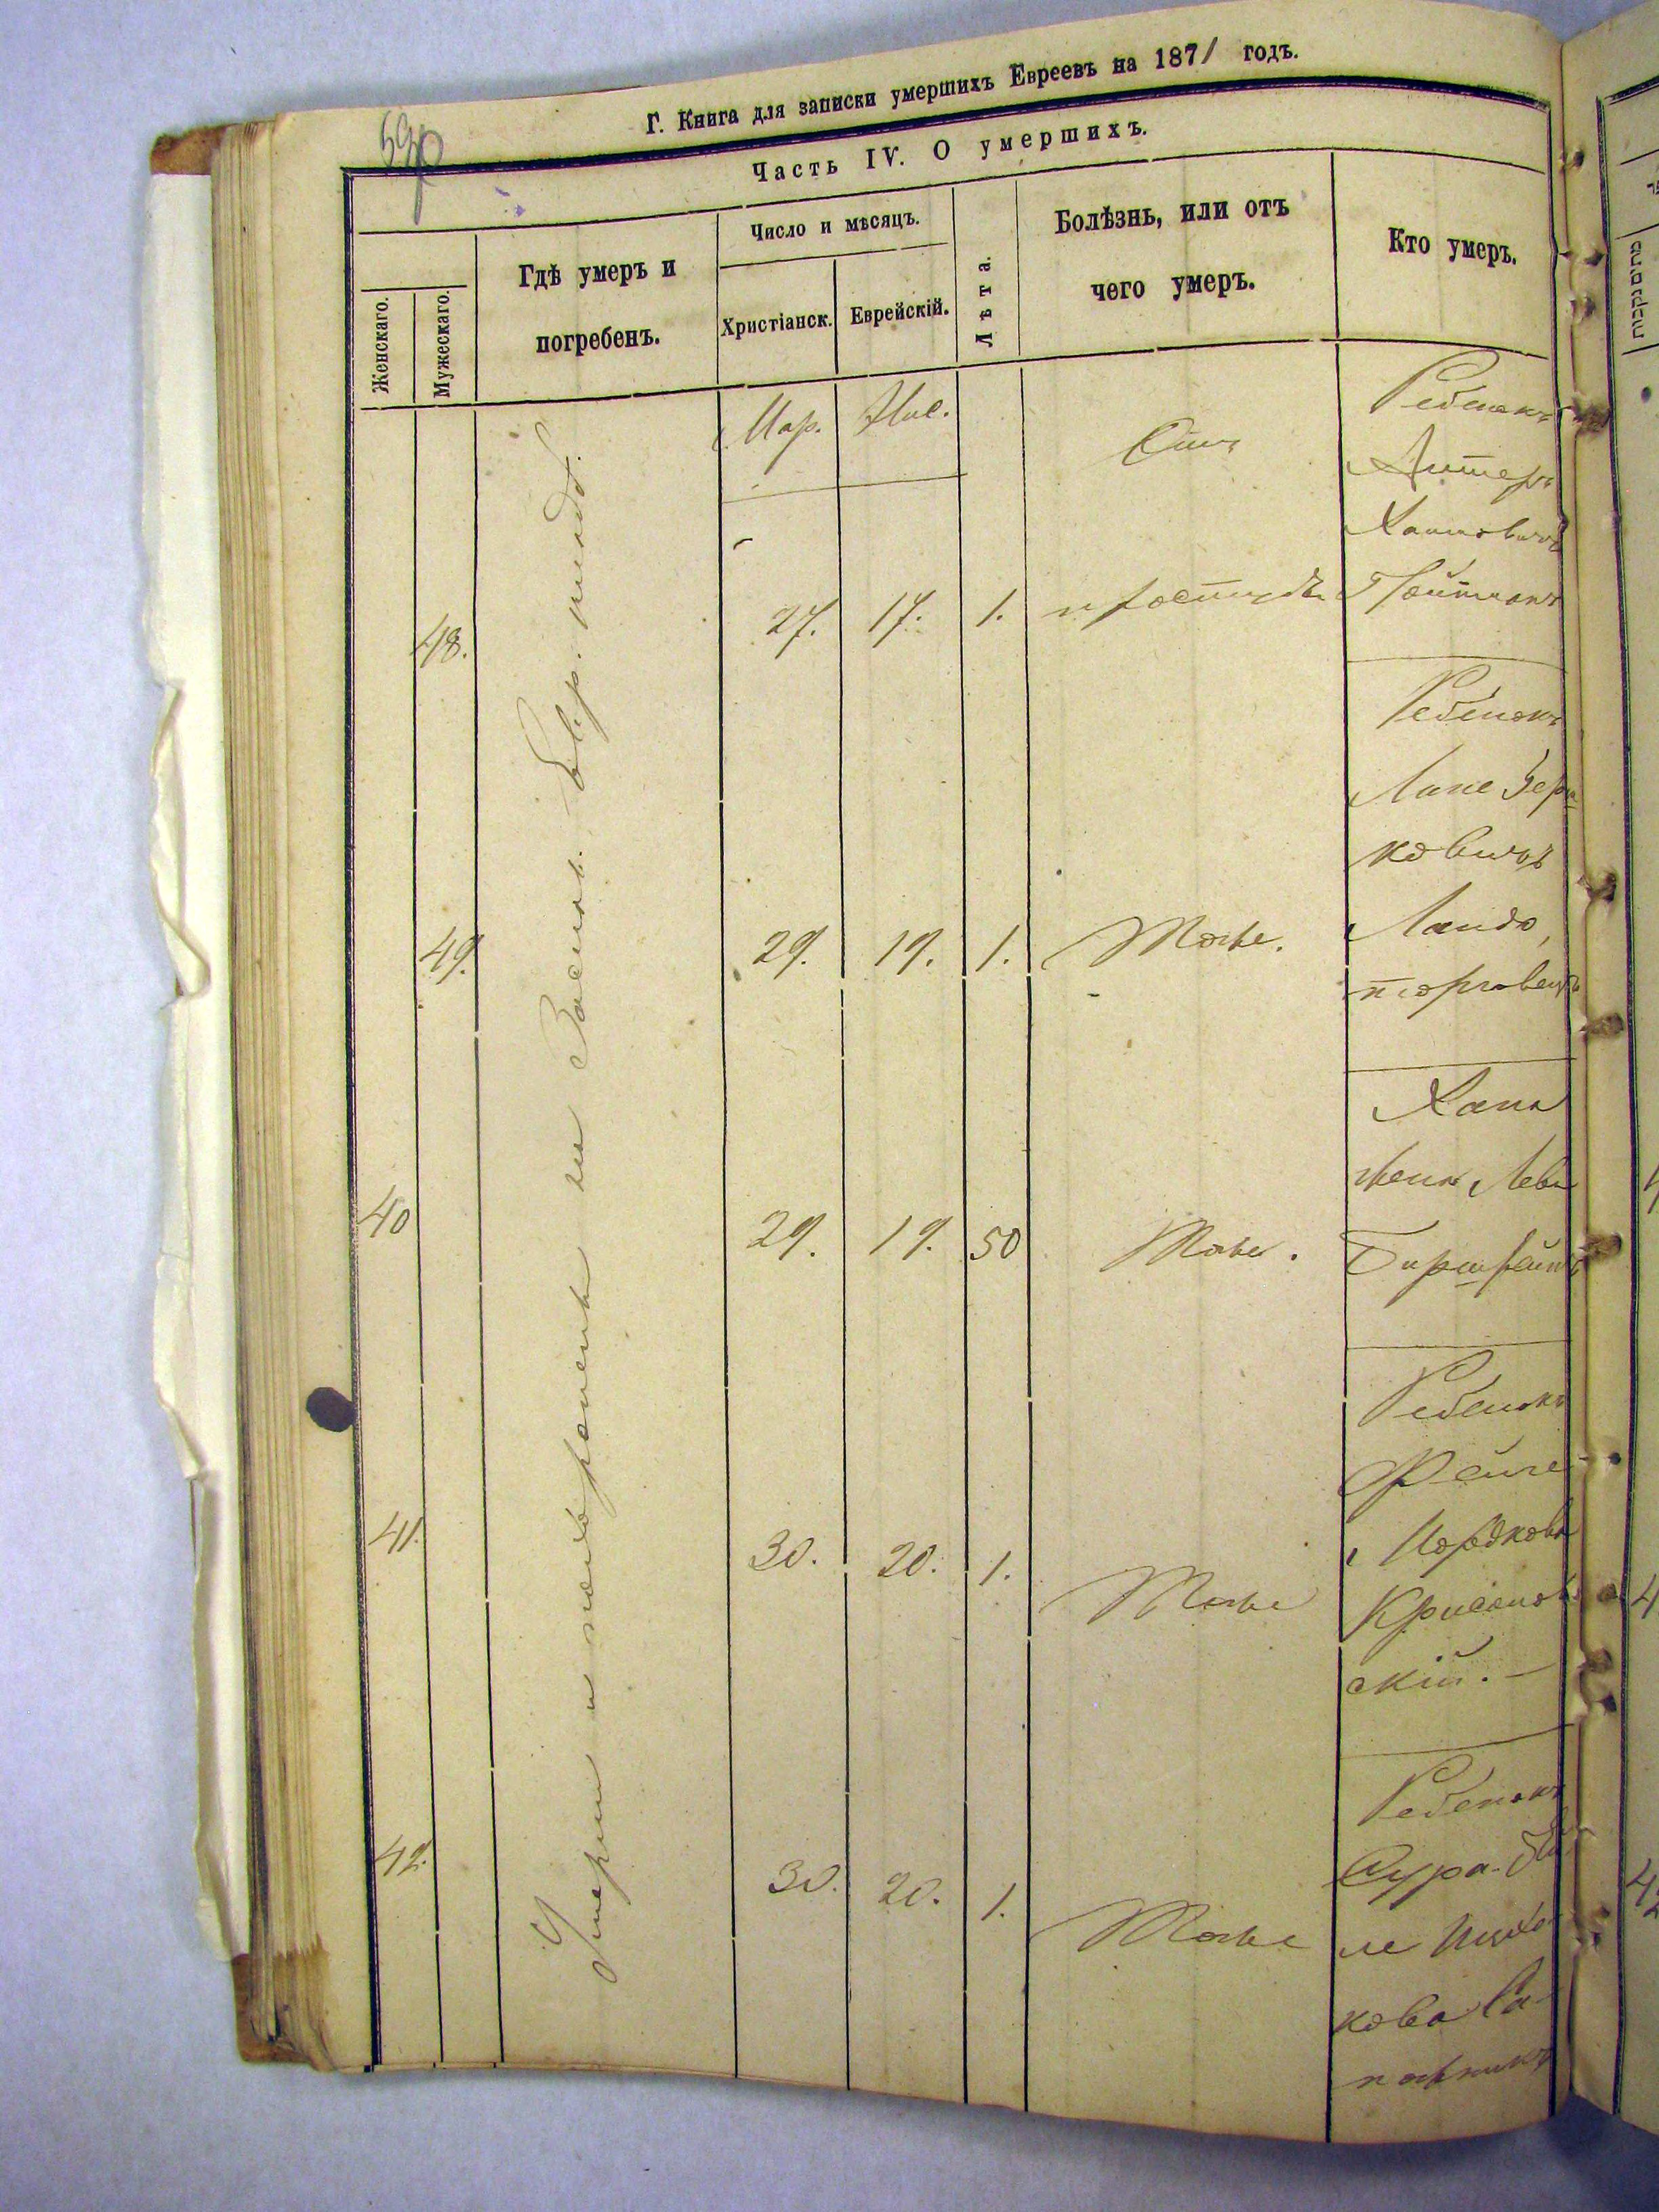 590
Г. Книга для записки умершихъ Евреевъ на 1871 годъ.
Часть IV. О умершихъ.
Женскаго.
Мужескаго.
Гдѣ умеръ и
погребенъ.
Число и мѣсяцъ.
Христіанск.
Еврейскій.
Лѣта.
Болѣзнь, или отъ
чего умеръ.
Кто умеръ.
Умерли и похоронены на Васильк. Евр. кладб.
Мар. Нис.
48. 27. 17. 1. Отъ
простуды
Ребенокъ
Алтеръ
Хаимовичъ
Гойтманъ
49. 29. 19. 1. Тоже.
Ребенокъ
Лейзер
ковичъ
Ландо,
торговецъ
40 29. 19. 50 Тоже.
Хана
жена Лейви
41. 30. 20. 1. Тоже
Ребенокъ
Фейге
Мордкова
Крисанов
скій. —
42. 30. 20. 1. Тоже
Ребенокъ
Сура-Бей
ле Ицко
кова Са
пожникъ
מתים נקבות